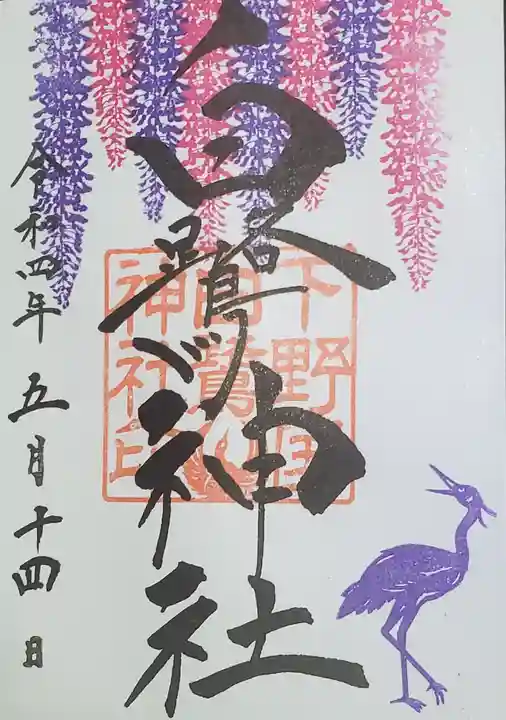 白鷺神社
下野國
白鷺
神社印
令和四年 五月十四日